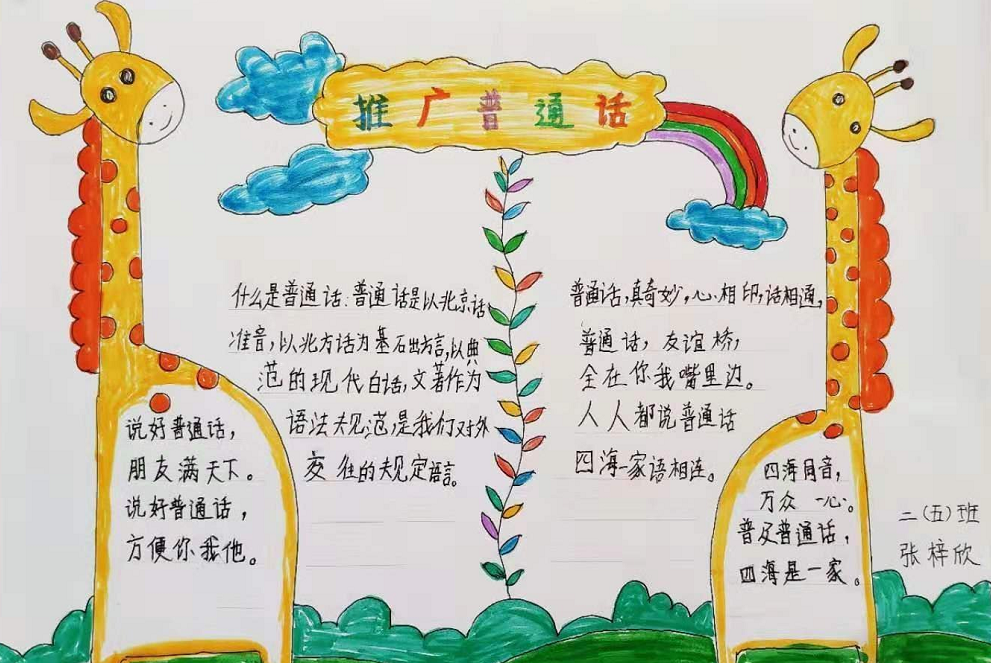 推广普通话
什么是普通话:普通话是以北京话
准音,以北方话为基石出方言,以典
范的现代白话,文著作为
语法夫见范,是我们对外
交往的夫见定语言。
普通话,真奇妙,心相印,话相通,
普通话,友谊桥,
全在你我嘴里边。
人人都说普通话
四海一家语相连。
说好普通话,
朋友满天下。
说好普通话,
方便你我他。
四海同音,
万众一心。
普及普通话,
四海是一家。
二(五)班
张梓欣